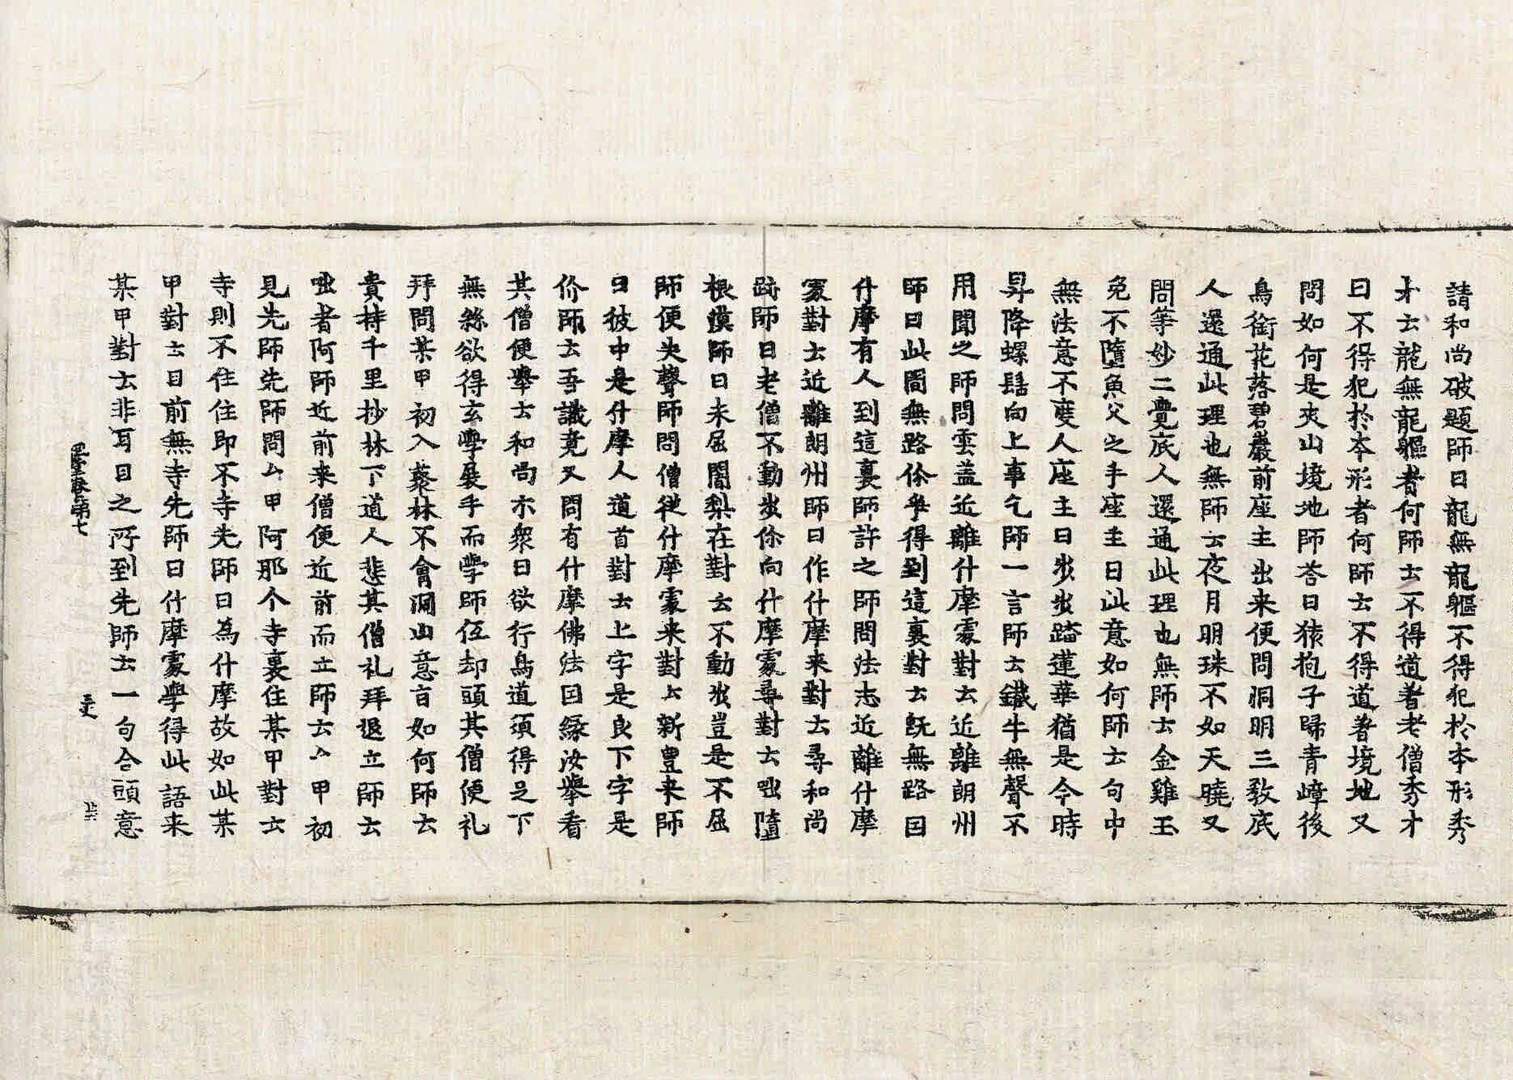 請和尚破題師曰龍無龍軀不得犯於夲形秀
才云龍無龍軀者何師云不得道著老僧秀才
曰不得犯於夲形者何師云不得道著境地又
問如何是夾山境地師荅曰猿抱子歸青嶂後
鳥銜花落碧巖前座主出来便問洞明三教底
人還通此理也無師云夜月明珠不如天曉又
問等妙二覺底人還通此理也無師云金雞玉
兔不墮魚父之手座主曰此意如何師云句中
無法意不度人座主曰步步踏蓮華猶是今時
昇降螺髻向上事乞師一言師云鐵牛無聲不
用聞之師問雲盖近離什摩處對云近離朗州
師曰此間無路你爭得到這裏對云既無路因
什摩有人到這裏師許之師問法志近離什摩
處對云近離朗州師曰作什摩来對云尋和尚
跡師曰老僧不動步你向什摩處尋對云咄墮
根漢師曰未屈闍梨在對云不動步豈是不屈
師便失聲師問僧從什摩處来對云新豊来師
曰彼中是什摩人道首對云上字是良下字是
价師云吾識竟又問有什摩佛法因緣汝擧看
其僧便擧云和尚示衆曰欲行鳥道須得足下
無絲欲得玄學展手而學師伍却頭其僧便礼
拜問某甲初入藂林不會洞山意旨如何師云
貴持千里抄林下道人悲其僧礼拜退立師云
咄者阿師近前来僧便近前而立師云厶甲初
見先師先師問厶甲阿那个寺裏住某甲對云
寺則不住住即不寺先師曰為什摩故如此某
甲對云目前無寺先師曰什摩處學得此語来
某甲對云非耳目之所到先師云一句合頭意